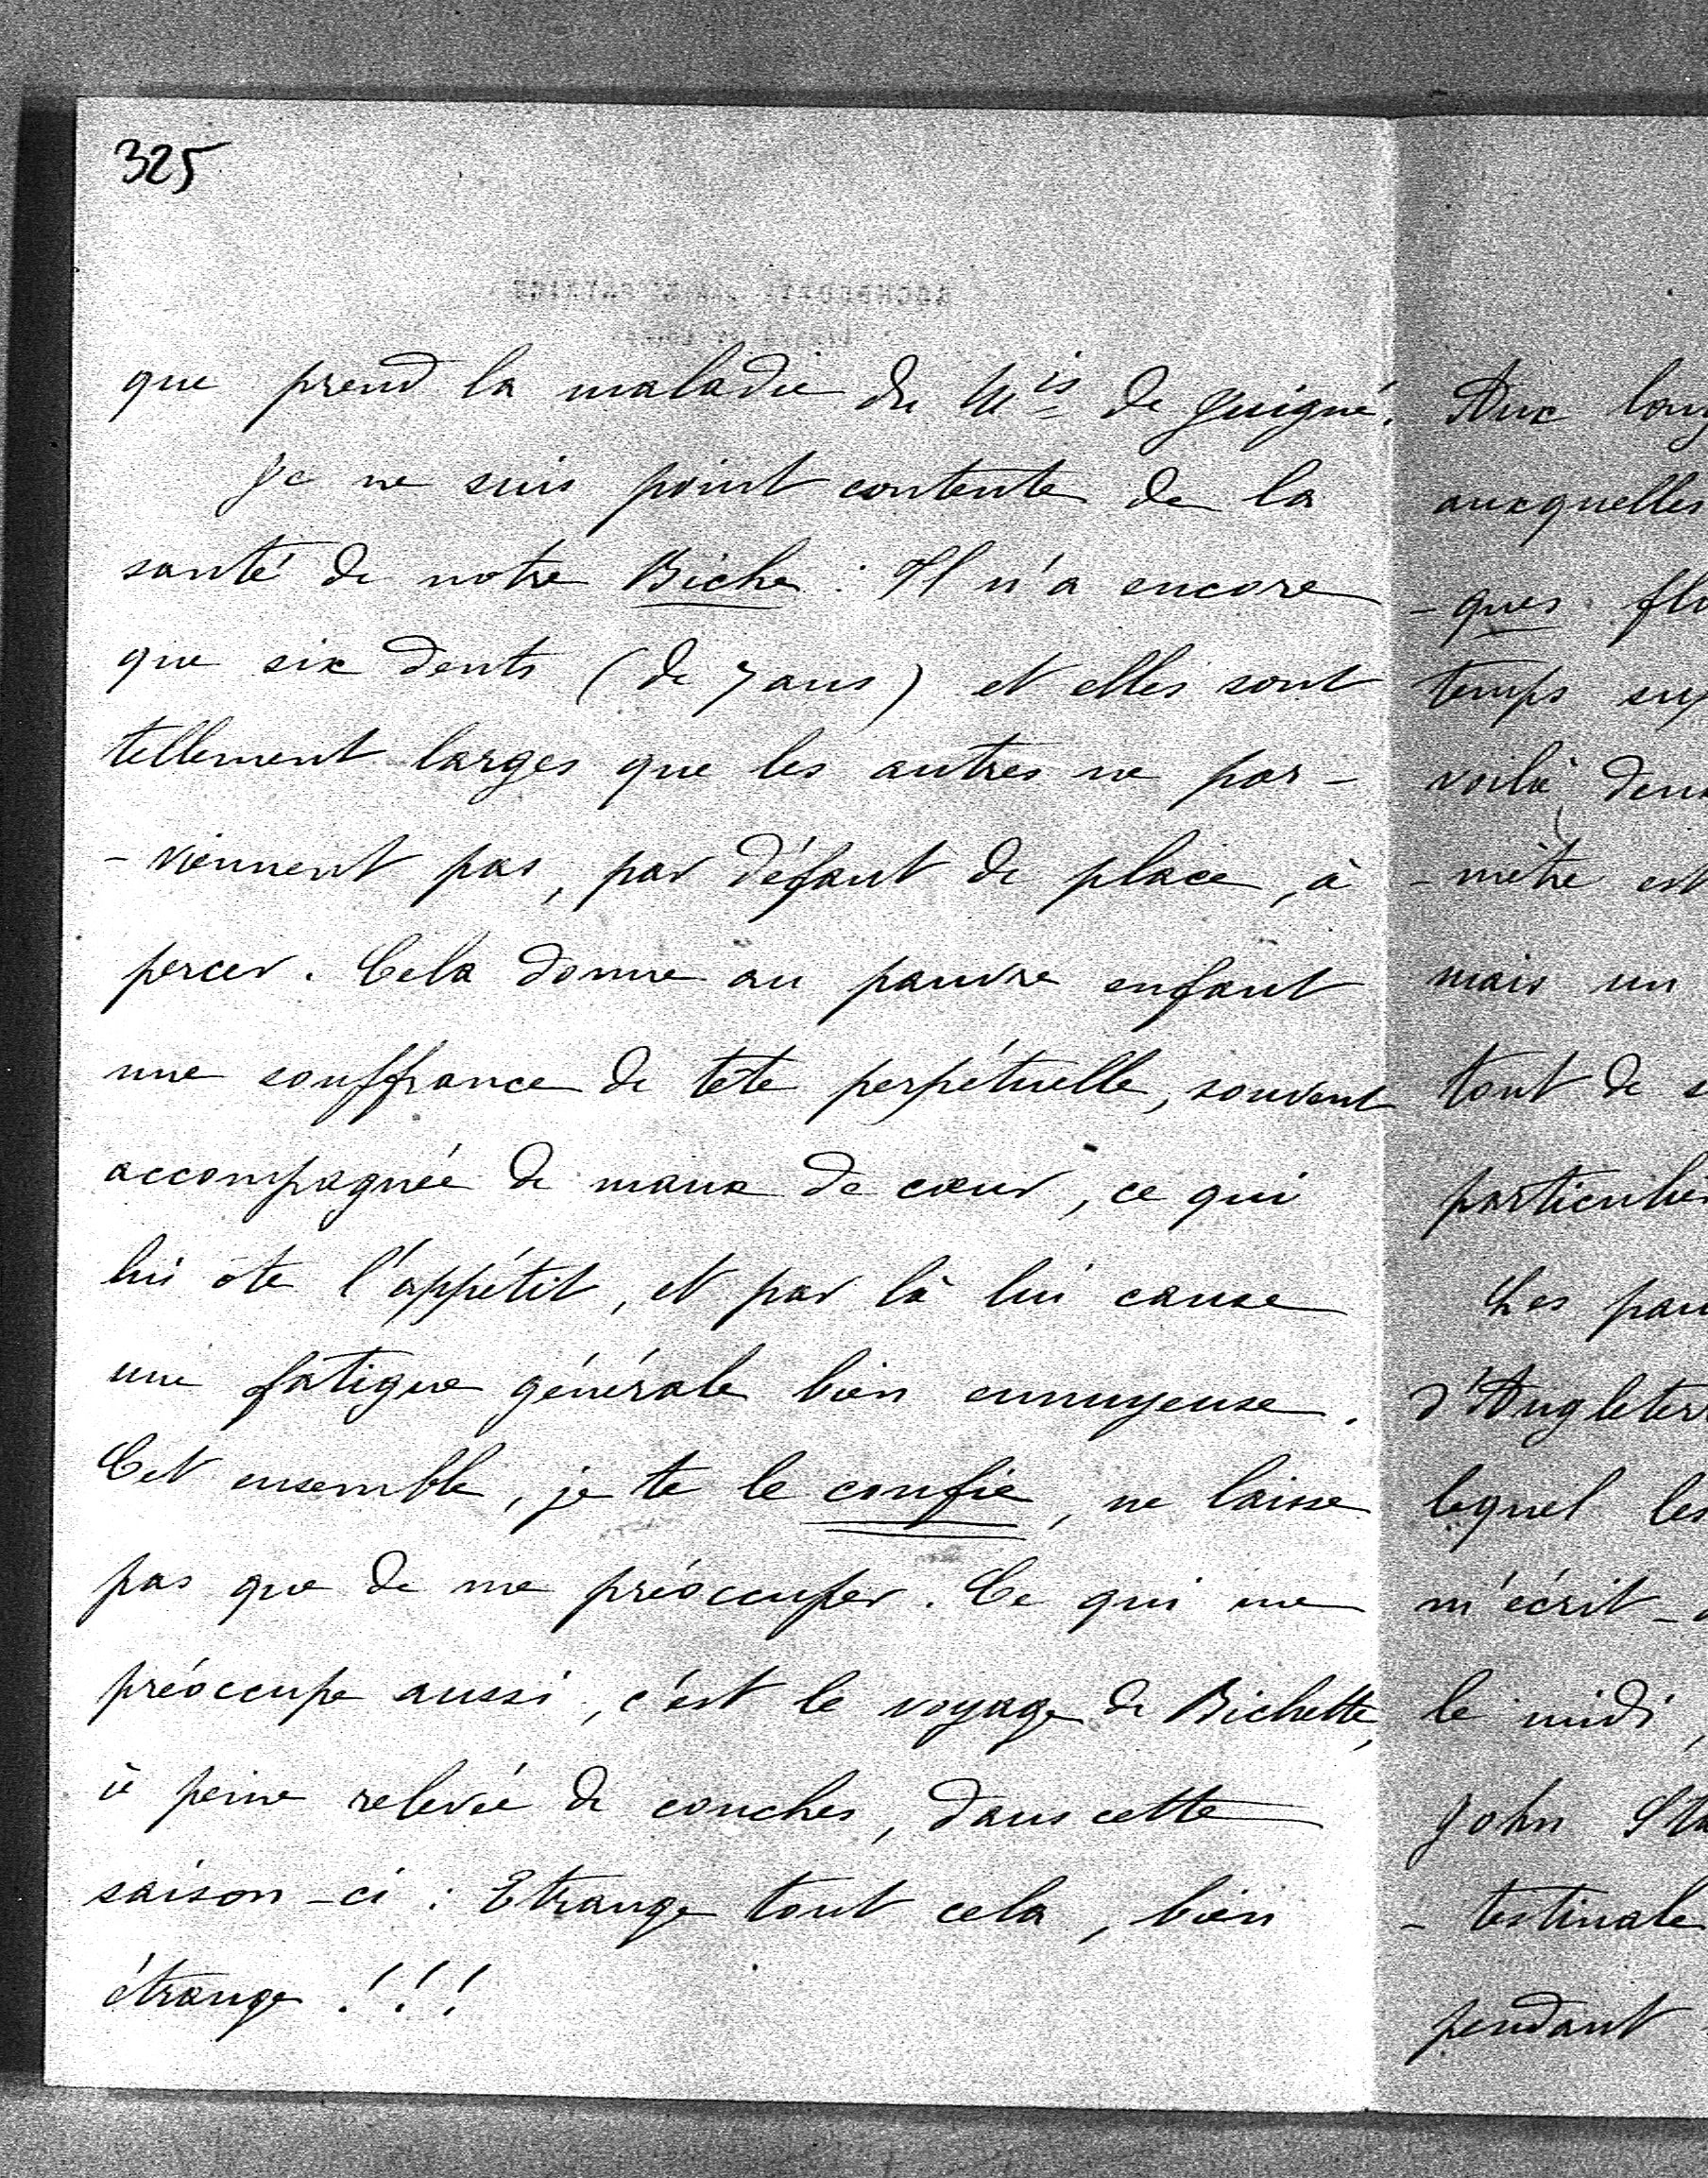 325
que prend la maladie du Mis de Guigné.
Je ne suis point contente de la
santé de notre Biche : Il n'a encore
que six dents (de 7 ans) et elles sont
tellement larges que les autres ne par-
-viennent pas, par défaut de place, à
percer. Cela donne au pauvre enfant
une souffrance de tête perpétuelle, souvent
accompagnée de maux de cœur, ce qui
lui ôte l'appétit, et par là lui cause
une fatigue générale bien ennuyeuse.
Cet ensemble, je te le confie, ne laisse
pas que de me préoccuper. Ce qui me
préoccupe aussi, c'est le voyage de Bichette,
à peine relevée de couches, dans cette
saison-ci : Etrange tout cela, bien
étrange !!!
Aux
auxquelles
-ques
temps
voilà
-mètre est
mais un
tout de
particuliè
Les
d'Angleter
lequel les
m'écrit-
le midi,
John
-testinale
pendant